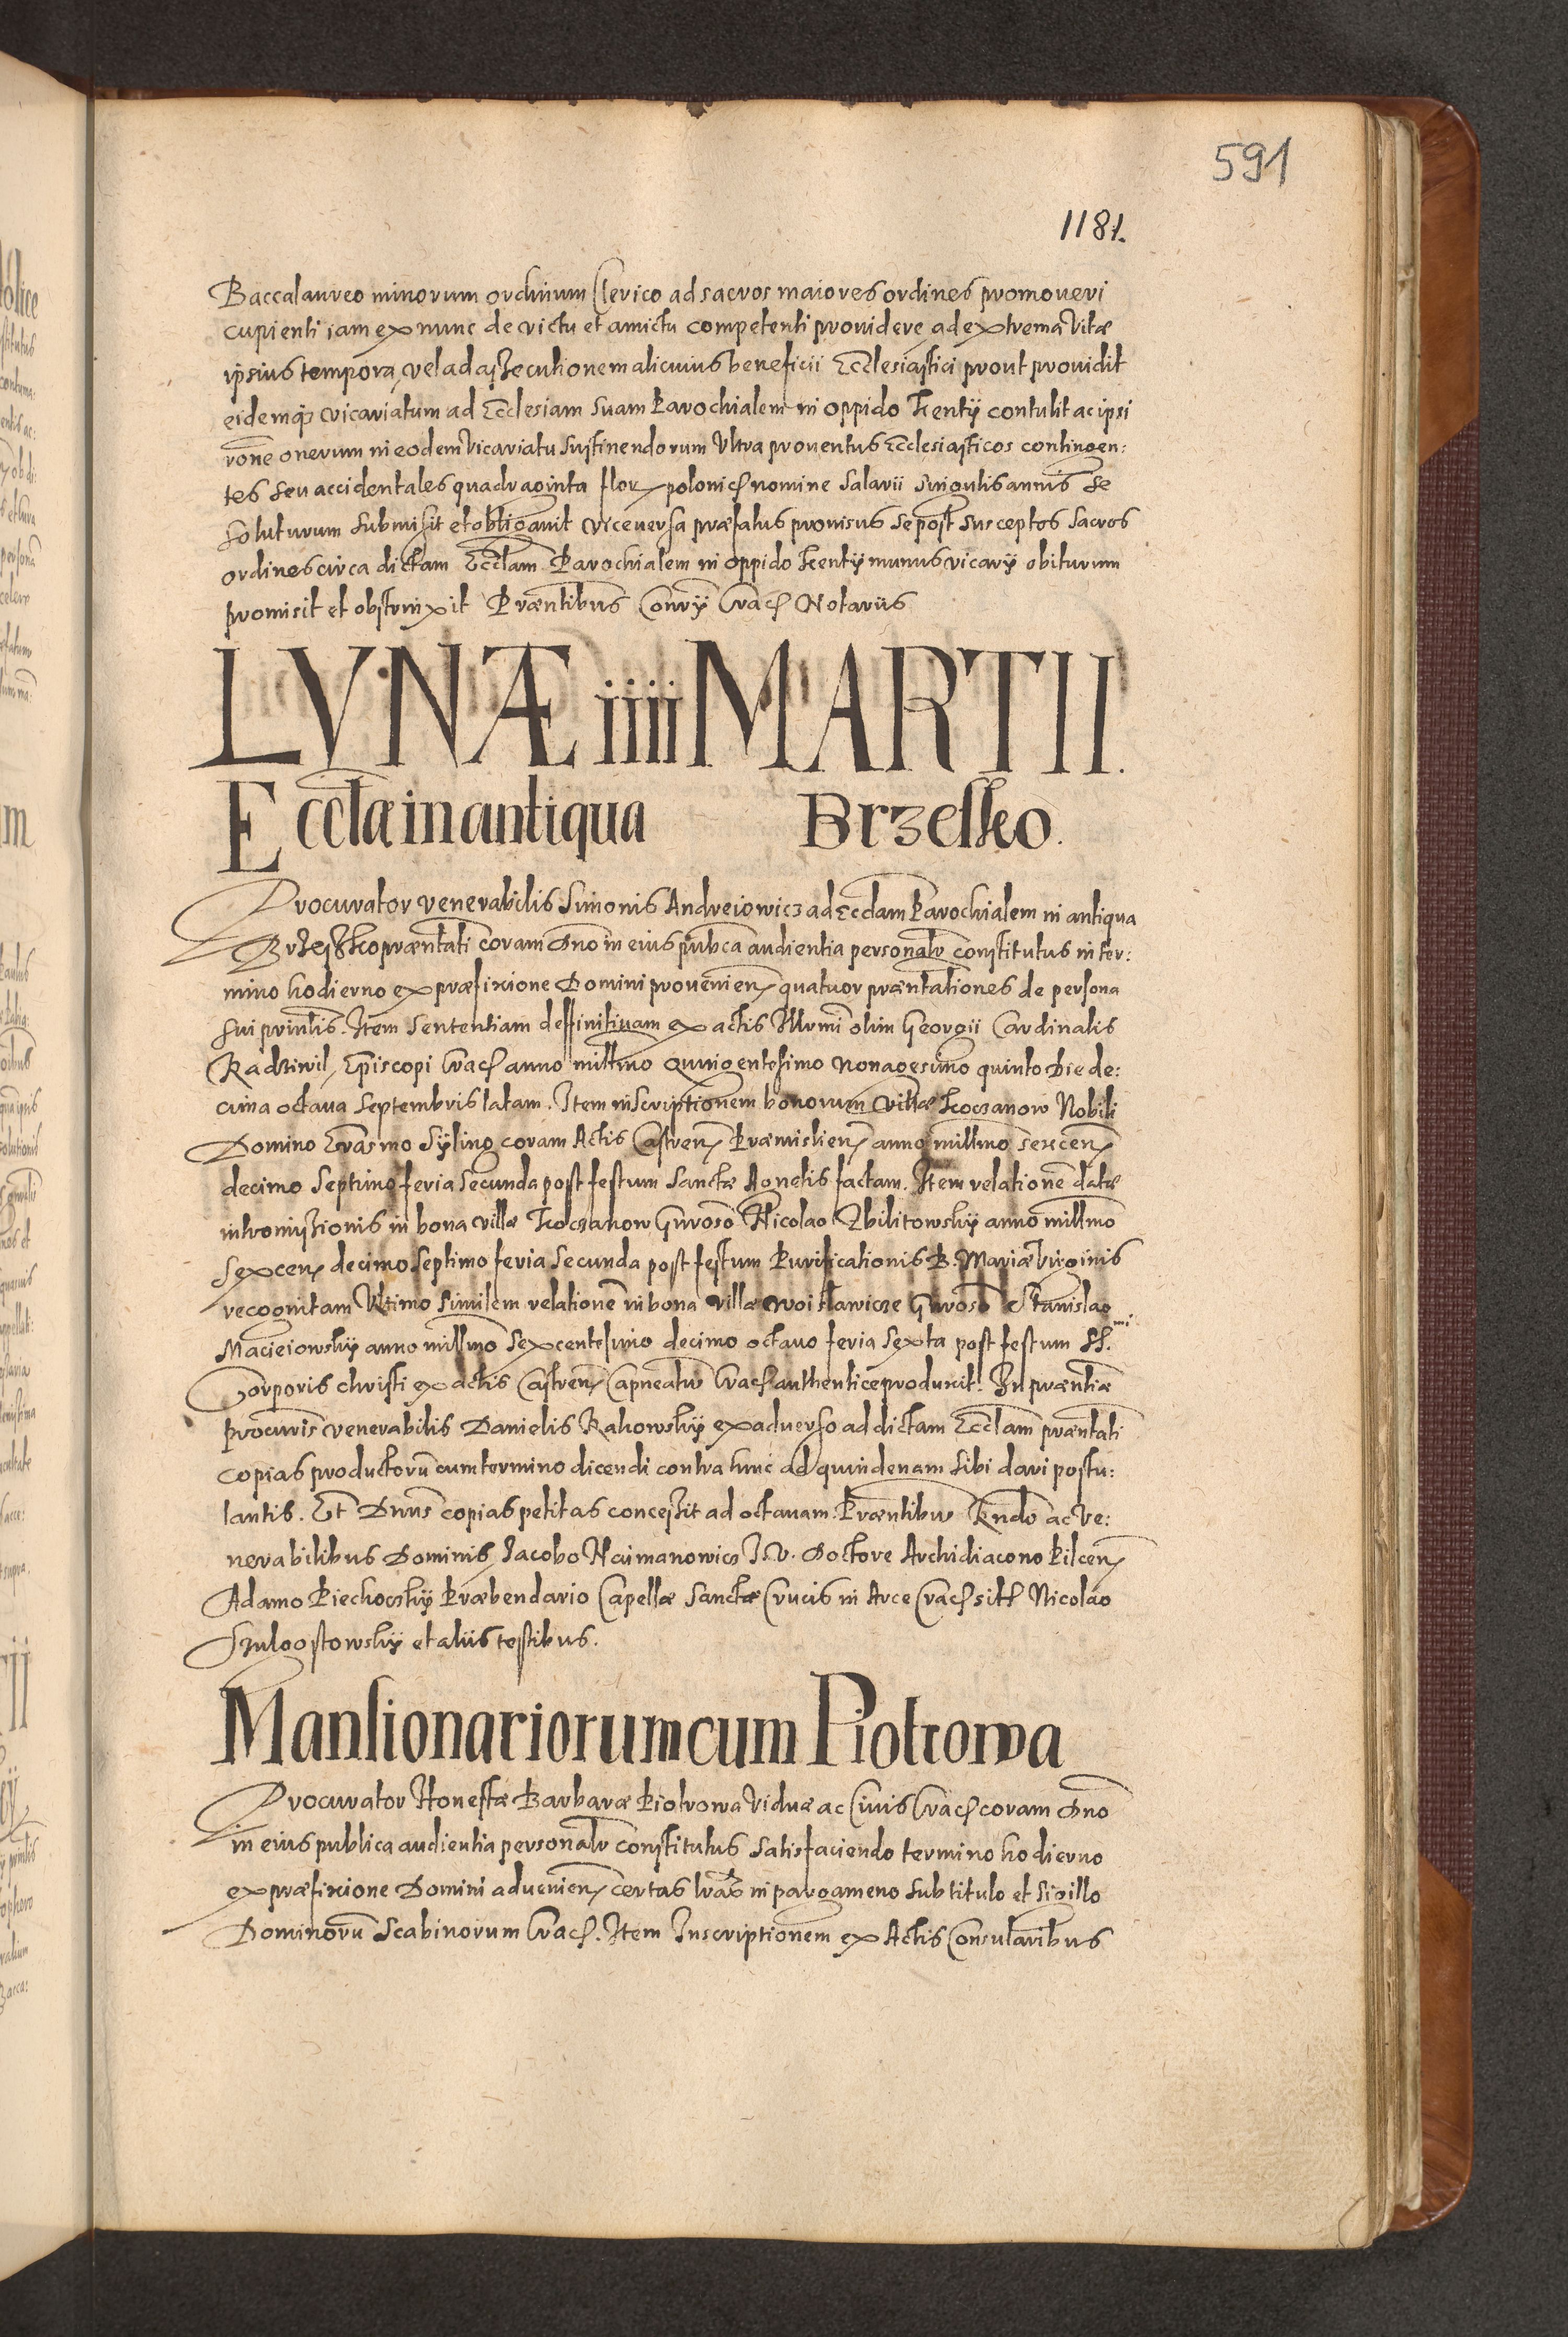 591
1181.
Baccalaureo minorum ordinum Clerico ad sacros maiores ordines promoveri
cupienti iam ex nunc de victu et amictu competenti prouidere ad extrema Vitæ
ipsius tempora, vel ad assecutionem alicuius beneficii Ecclesiastici prout prouidit
eidemq3 vicariatum ad Ecclesiam suam Parochialem in oppido Kenty contulit ac ipsi
rone onerum in eodem Vicariatu sustinendorum Ultra prouentus Ecclesiasticos contingen:
tes seu accidentales quadraginta flor polonich nomine salarii singulis annis se
soluturum submisit et obligauit viceuersa præfatus prouisus se post susceptos sacros
ordines circa dictam Ecclam Parochialem in oppido Kenty munus vicarÿ obiturum
promisit et obstrinxit Præntibus Conrÿ Crach Notariis
LVNÆ iiii MARTII.
Ecclæ in antiqua Brzesko.
Procurator venerabilis Simonis Andreiowicz ad Ecclam Parochialem in antiqua
Brzeszko præntati coram Dno in eius pubca audientia personalr constitutus in ter:
mino hodierno ex præfixione Domini prouenien quatuor præntationes de persona
sui prinlis. Item sententiam deffinitiuam ex actis Illrmi olim Georgii Cardinalis
Radziwil Episcopi Crach anno millmo Quingentesimo Nonagesimo quinto Die de:
cima octaua Septembris latam. Item inscriptionem bonorum villæ Koczanow Nobili
Domino Erasmo Sÿling coram Actis Castren Præmislien anno millmo sexcen
decimo Septimo feria secunda post festum Sanctæ Agnetis factam. Item relatione datæ
intromissionis in bona villæ Koczanow Gnroso Nicolao Zbilitowskÿ anno millmo
sexcen decimo Septimo feria secunda post festum Purificationis B. Mariæ Virginis
recognitam Ultimo similem relatione in bona villæ Woislawicze Gnroso Stanislao
Macieiowskÿ anno millmo Sexcentesimo decimo octauo feria sexta post festum SS.mi
Corporis christi ex actis Castren Capneatus Crach authentice produxit. In præntia
procuris venerabilis Danielis Rakowskÿ ex aduerso ad dictam Ecclam præntati
copias productoru cum termino dicendi contra hinc ad quindenam sibi dari postu:
lantis. Et Dnus copias petitas concessit ad octauam. Præntibus Rndo ac Ve:
nerabilibus Dominis Jacobo Naimanowicz I. V. Doctore Archidiacono Pilcen
Adamo Piechowskÿ Præbendario Capellæ Sanctæ Crucis in Arce Crach sitæ Nicolao
Smlogostowskÿ et aliis testibus.
Mansionariorum cum Piotrowa
Procurator Honestæ Barbaræ Piotrowa Viduæ ac Ciuis Crach coram Dno
in eius publica audientia personalr constitutus satisfaciendo termino hodierno
ex præfixione Domini aduenien certas lras in pargameno sub titulo et sigillo
Dominoru Scabinorum Crach. Item Inscriptionem ex Actis Consularibus